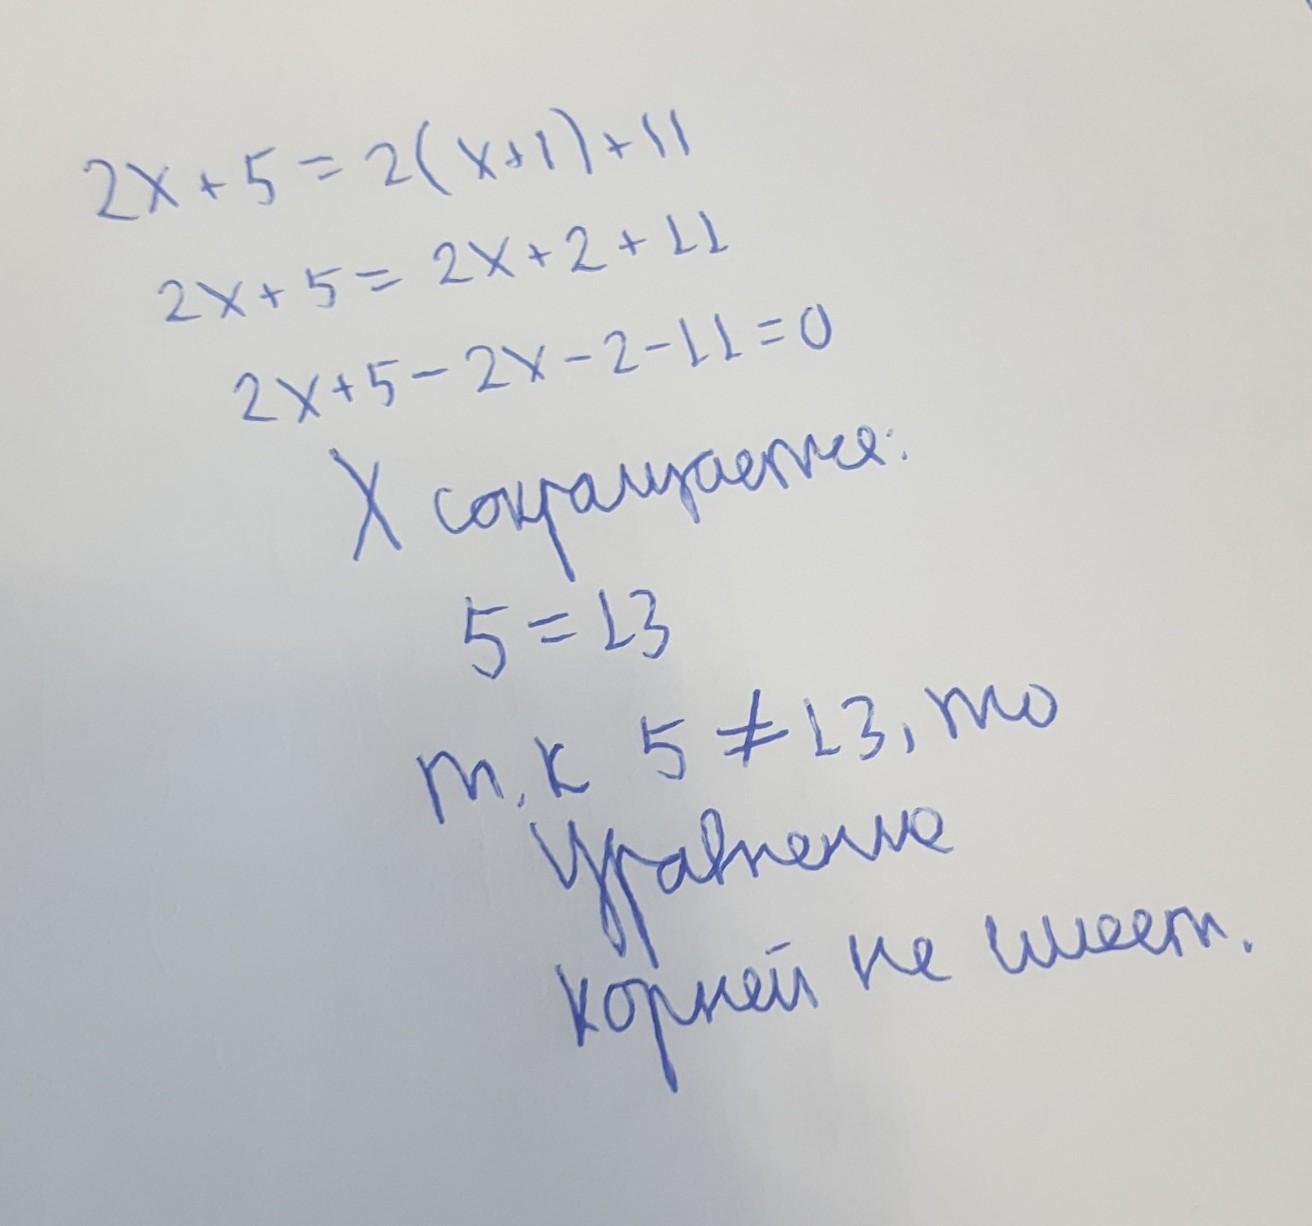 2x+5=2(x+1)+11
2x+5=2x+2+11
2x+5-2x-2-11=0
X сокращается:
5=13
т.к 5≠13, то
Уравнение
корней не имеет.